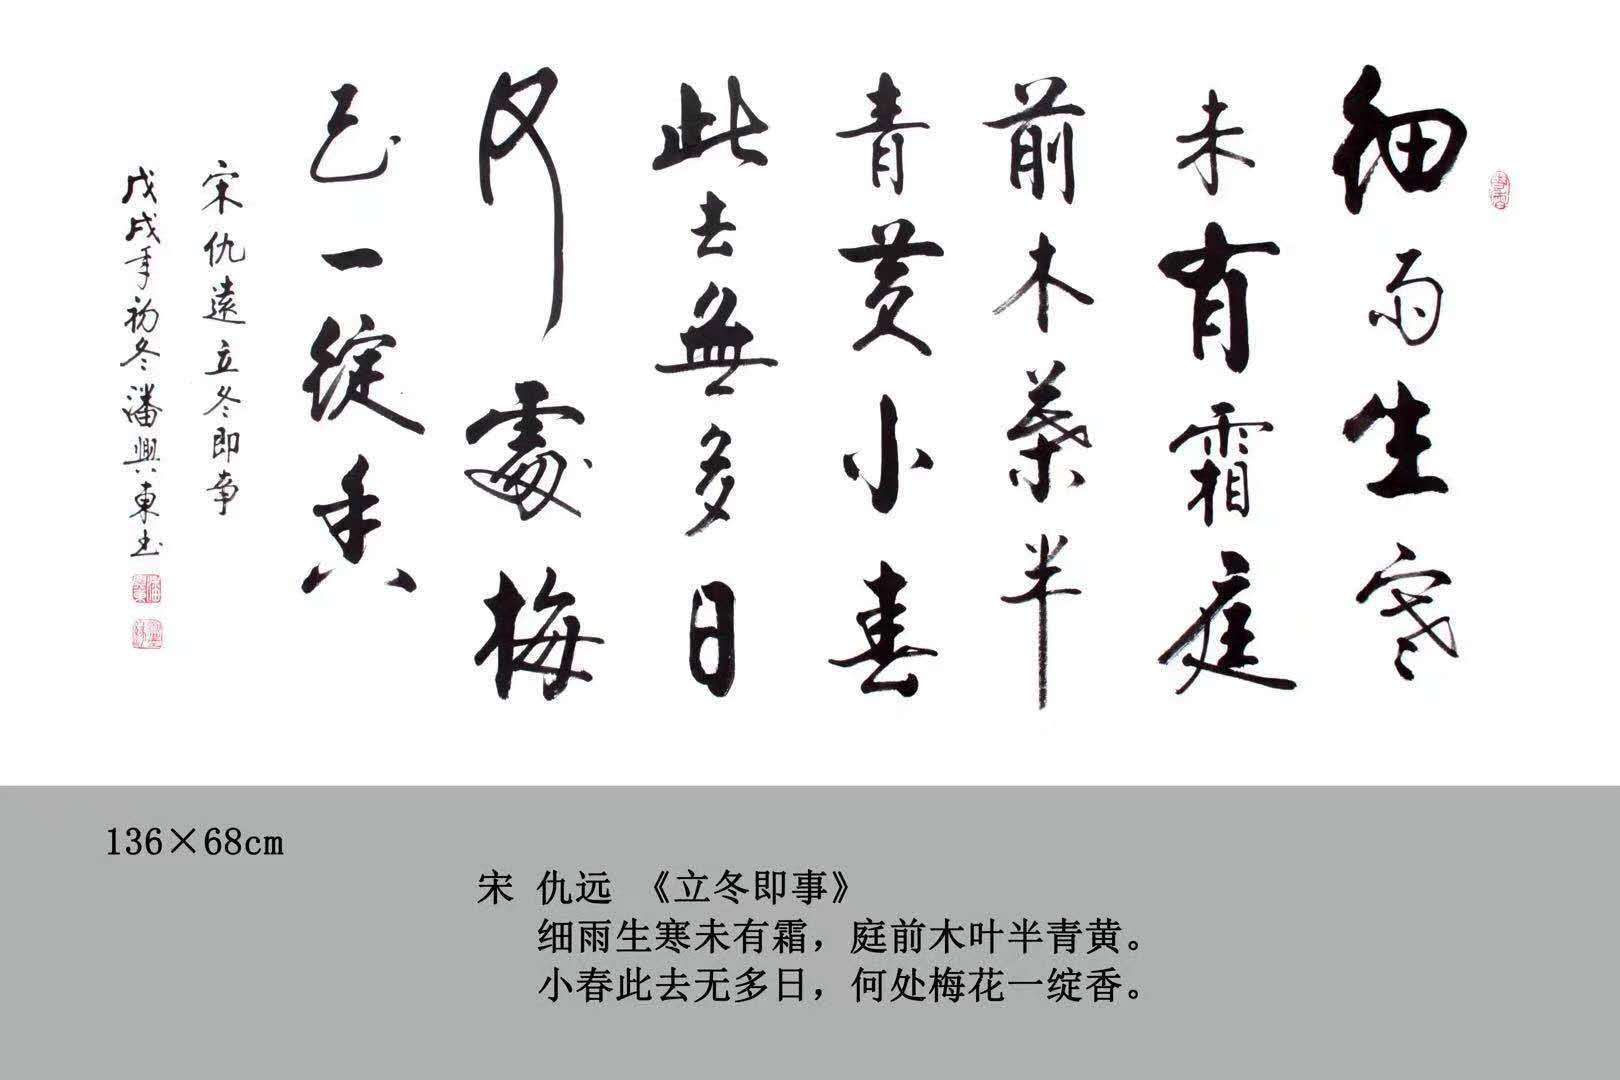 细雨生寒
未有霜庭
前木葉半
青黄小春
此去無多日
何處梅
花一綻香
宋仇遠立冬即事
戊戌年初冬潘興東书
136×68cm
宋 仇远 《立冬即事》
细雨生寒未有霜，庭前木叶半青黄。
小春此去无多日，何处梅花一绽香。